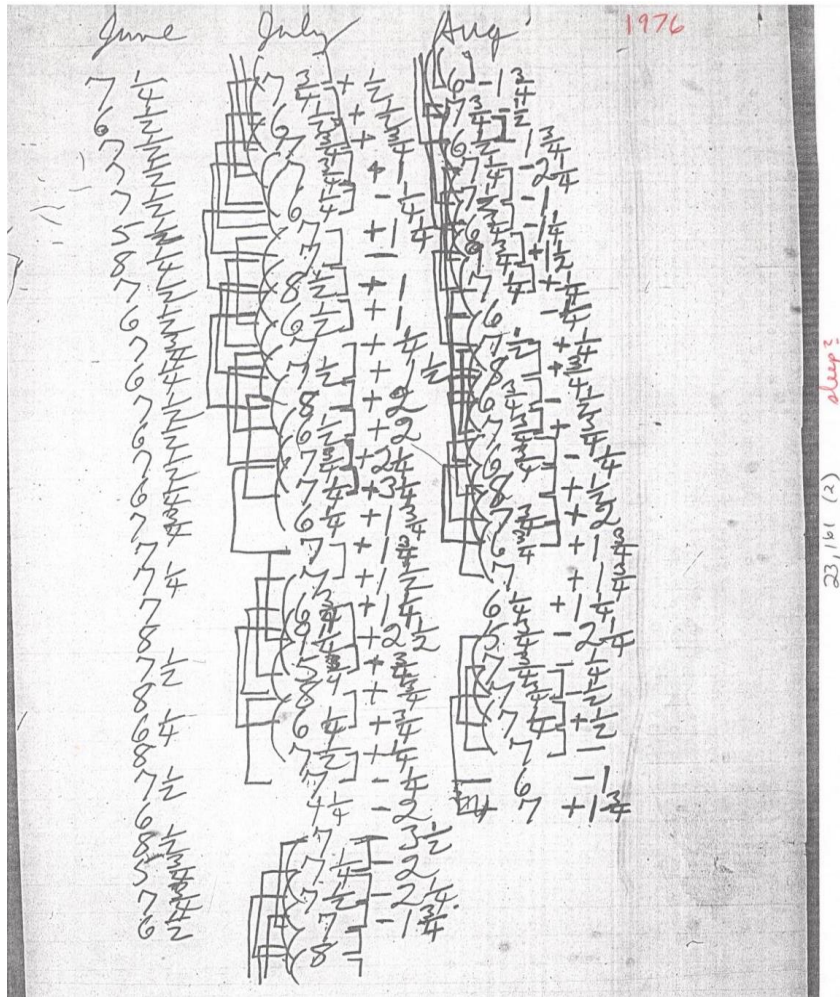 June July Aug 1976
7 1/4
6 1/2
7 1/2
7 1/2
5 1/2
8 1/4
7 1/2
6 1/2
7 3/4
6 1/4
7 1/2
6 1/2
7 1/2
6 1/4
7 3/4
7
7 1/4
7
8
7 1/2
8
6 1/4
8
7 1/2
6
8 1/2
5 3/4
7 3/4
6 1/2
7 3/4 + 1/2
6 1/2 + 1/2
7 3/4 + 3/4
7 3/4 + 1
6 1/4 - 1/4
7 + 1 1/4
7 -
8 1/2 + 1
6 1/2 + 1
7 + 1/4
7 1/2 + 1 1/2
8 + 2
6 1/2 + 2
7 3/4 + 2 1/4
7 1/4 + 3 1/4
6 1/4 + 1 3/4
7 + 1 3/4
7 + 1 1/2
6 3/4 + 1 1/4
+ 2 1/2
5 3/4 + 3/4
8 + 3/4
6 1/4 + 3/4
7 1/2 + 1/4
7 - 1/4
4 1/4 - 2
7 - 3 1/2
7 1/4 - 2
7 1/2 - 2 1/4
7 - 1 3/4
8
6 - 1 3/4
7 3/4 - 1/2
6 1/2 1 3/4
7 1/4 - 2 1/4
7 3/4 - 1
6 3/4 - 1 1/4
+ 1 1/2
7 1/4 + 1/4
6 - 1/4
7 1/2 + 1/4
8 + 3/4
6 3/4 - 1/2
7 3/4 + 3/4
6 3/4 - 1/4
8 + 1/2
7 3/4 + 2
6 3/4 + 1 3/4
7 + 1 3/4
6 1/4 + 1 1/4
5 3/4 - 2 1/4
7 3/4 - 1/4
7 3/4 - 1/2
7 1/4 + 1/2
7 -
6 - 1
7 + 1 3/4
sleep?
23,161 (2)